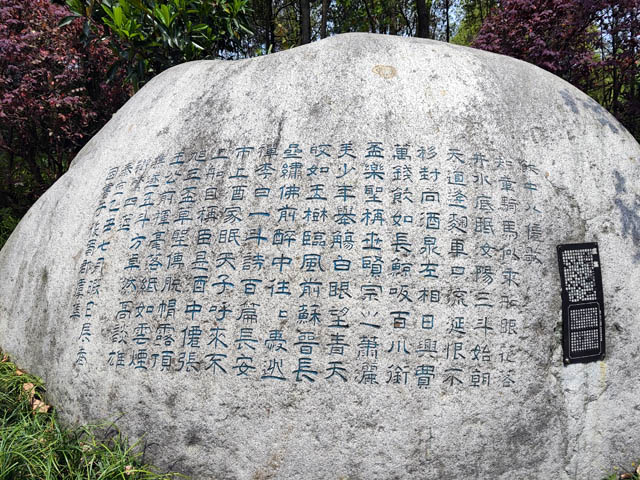 飲中八僊歌
知章騎馬似乘船眼花落
井水底眠汝陽三斗始朝
天道逢麴車口流涎恨不
移封向酒泉左相日興費
萬錢飲如長鯨吸百川銜
盃樂聖稱世賢宗之蕭灑
美少年舉觴白眼望青天
皎如玉樹臨風前蘇晉長
齋繡佛前醉中往〻愛逃
禪李白一斗詩百篇長安
市上酒家眠天子呼來不
上船自稱臣是酒中僊張
旭三盃草聖傳脫帽露頂
王公前揮毫落紙如雲煙
焦遂五斗方卓然高談雄
辯驚四筵